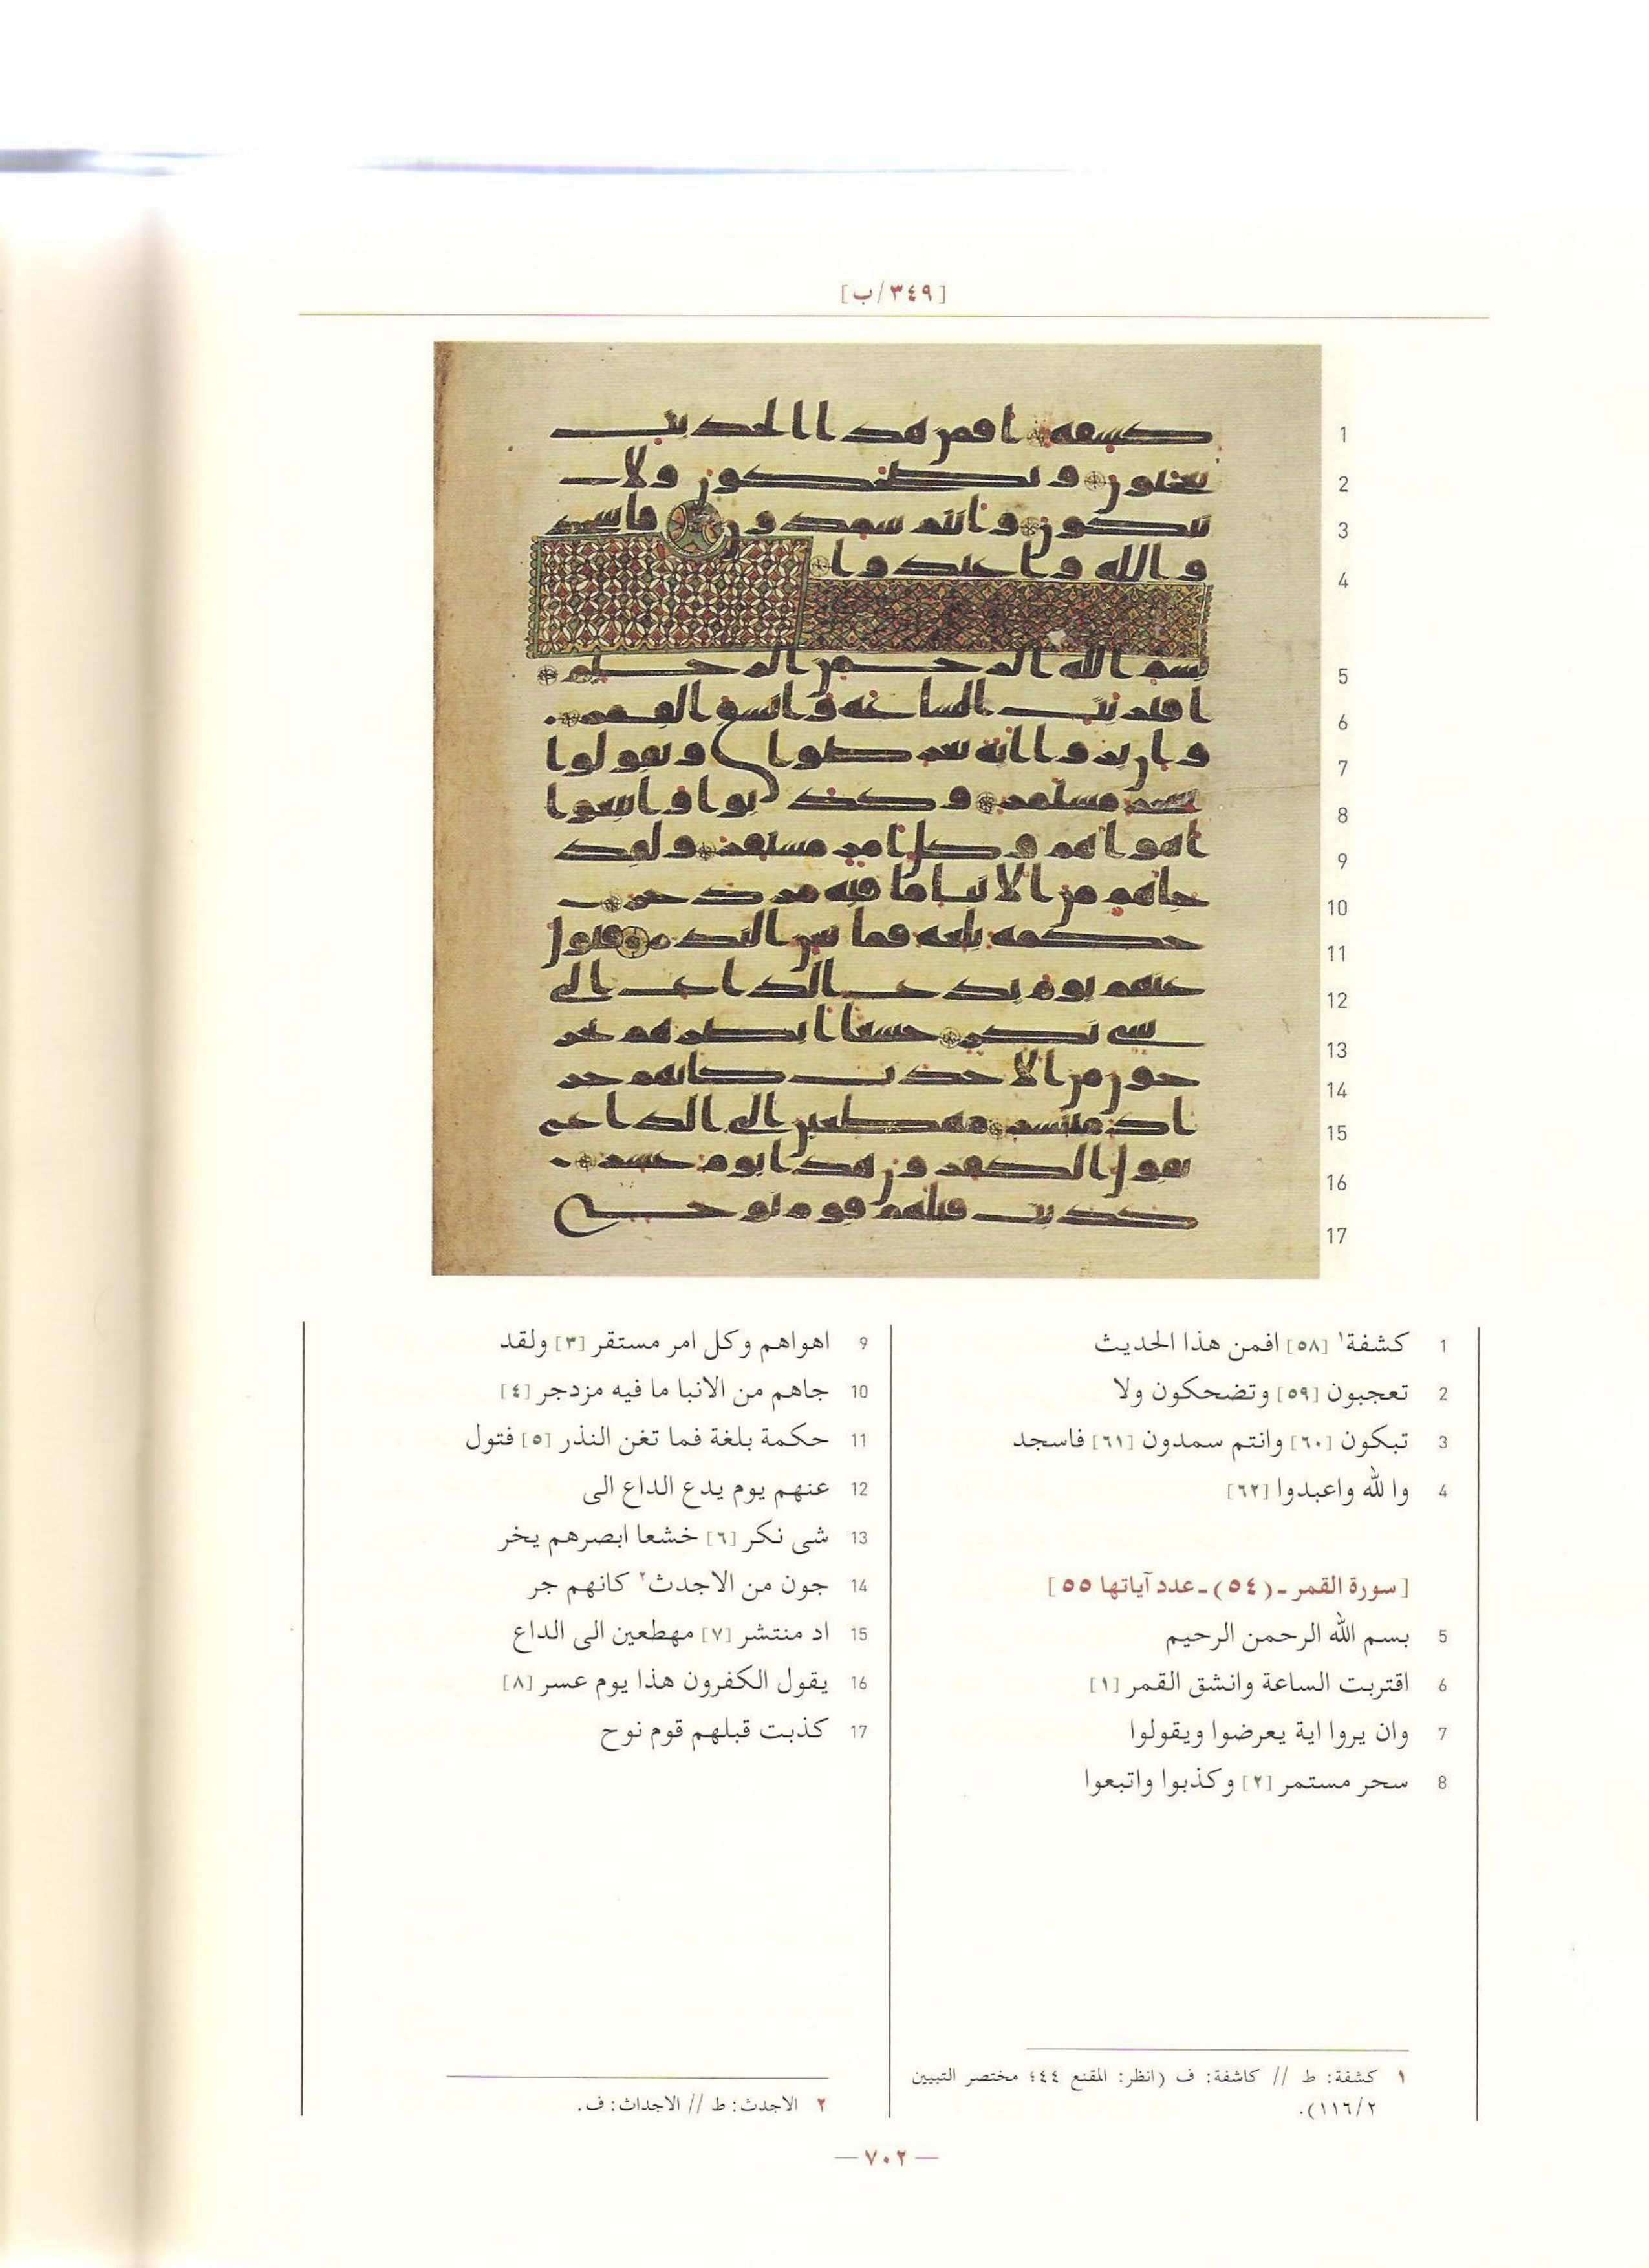 [٣٤٩/ب]
1
2
3
4
5
6
7
8
9
10
11
12
13
14
15
16
17
1 كشفة١ [٥٨] افمن هذا الحديث
2 تعجبون [٥٩] وتضحكون ولا
3 تبكون [٦٠] وانتم سمدون [٦١] فاسجد
4 وا لله واعبدوا [٦٢]
[سورة القمر ـ (٥٤) ـ عدد آياتها ٥٥]
5 بسم الله الرحمن الرحيم
6 اقتربت الساعة وانشق القمر [١]
7 وان يروا اية يعرضوا ويقولوا
8 سحر مستمر [٢] وكذبوا واتبعوا
9 اهواهم وكل امر مستقر [٣] ولقد
10 جاهم من الانبا ما فيه مزدجر [٤]
11 حكمة بلغة فما تغن النذر [٥] فتول
12 عنهم يوم يدع الداع الى
13 شى نكر [٦] خشعا ابصرهم يخر
14 جون من الاجدث٢ كانهم جر
15 اد منتشر [٧] مهطعين الى الداع
16 يقول الكفرون هذا يوم عسر [٨]
17 كذبت قبلهم قوم نوح
١ كشفة: ط // كاشفة: ف (انظر: المقنع ٤٤؛ مختصر التبيين
٢/١١٦).
٢ الاجدث: ط // الاجداث: ف.
— ٧٠٢ —